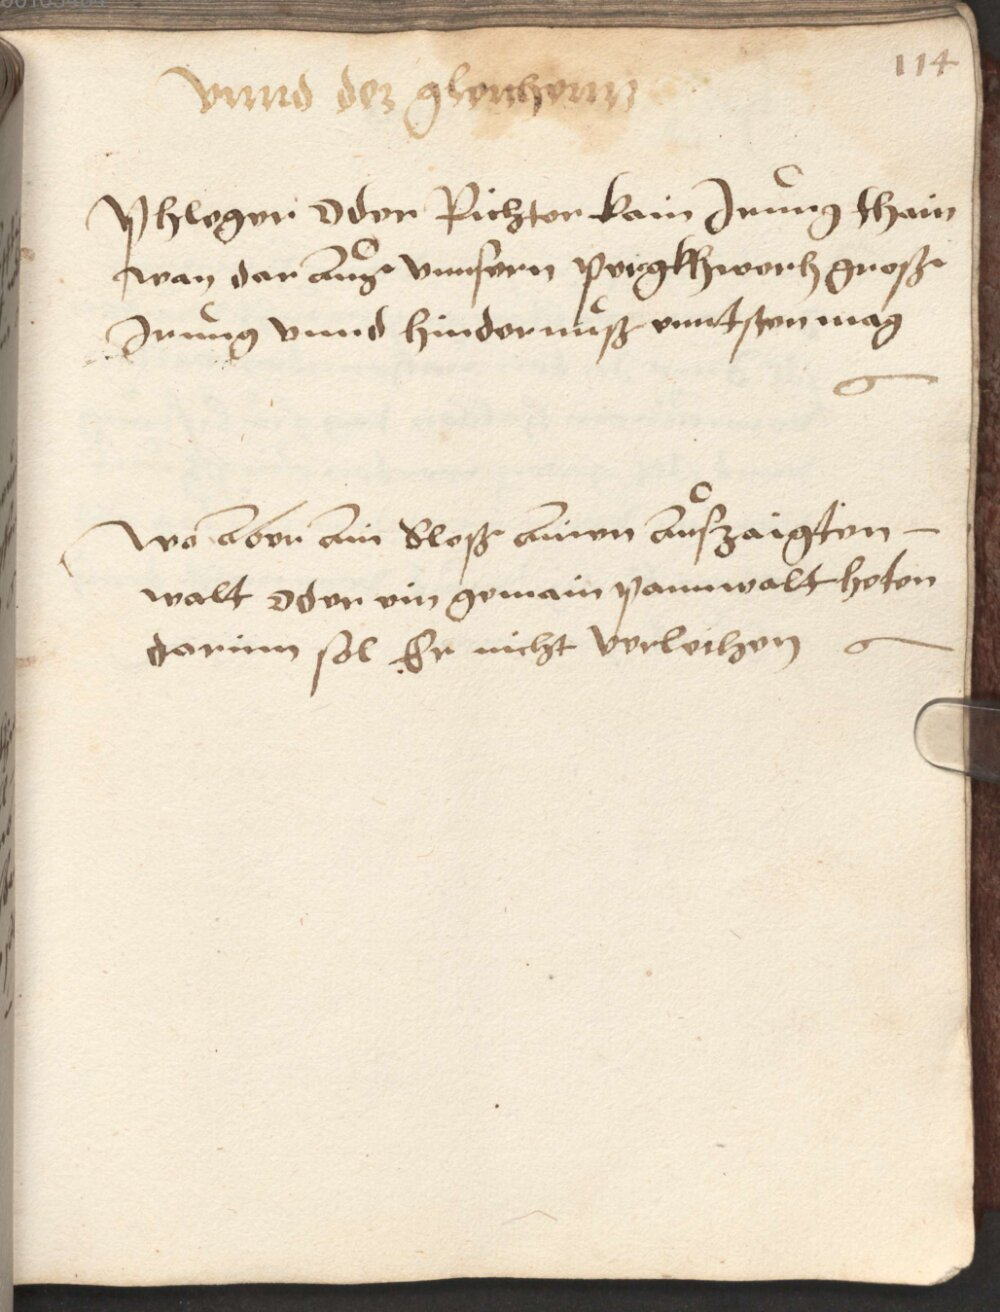 114
vnnd der gleichenn
Phleger oder Richter kain Irrung thain
wan dar auß vnnsern pergkhwerch große
Irrung vnnd hindernuß enntsten mag
Wo aber ain Sloß ainen außzaigten
walt oder ein gemain pannwalt heten
darinn sol Er nicht verleihen